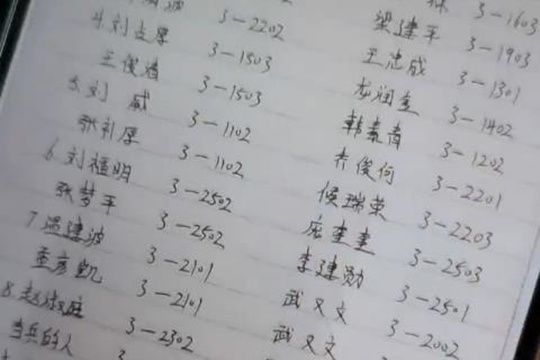 波 3-2202
4.刘占厚 3-1503
王俊清 3-1503
5.刘 威 3-1102
张礼厚 3-1102
6.刘福明 3-2502
张梦平 3-2502
7.温建波 3-2101
董彦凯 3-2101
8.赵 3-2302
当兵的人 3
3-1603
梁建平 3-1903
王忠成 3-1301
龙润奎 3-1402
韩素青 3-1202
乔俊何 3-2201
侯瑞荣 3-2203
庞奎圭 3-2503
李建勋 3-2501
武又文 3-2002
武又文